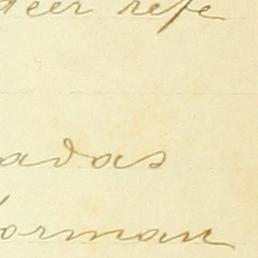 teer refe
adas
orman